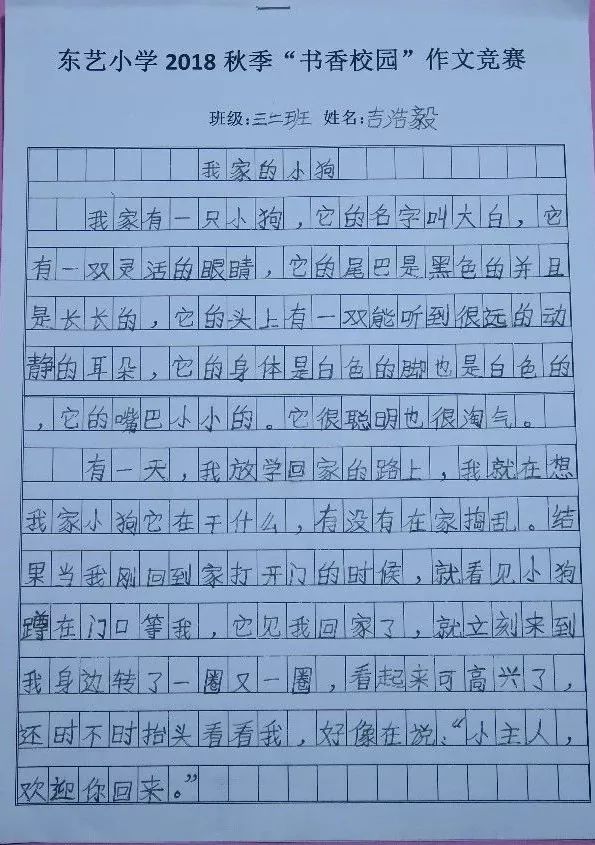 东艺小学2018秋季“书香校园”作文竞赛
班级:三二班 姓名:吉浩毅
我家的小狗
我家有一只小狗，它的名字叫大白，它
有一双灵活的眼睛，它的尾巴是黑色的并且
是长长的，它的头上有一双能听到很远的动
静的耳朵，它的身体是白色的脚也是白色的
，它的嘴巴小小的。它很聪明也很淘气。
有一天，我放学回家的路上，我就在想
我家小狗它在干什么，有没有在家捣乱。结
果当我刚回到家打开门的时候，就看见小狗
蹲在门口等我，它见我回家了，就立刻来到
我身边转了一圈又一圈，看起来可高兴了，
还时不时抬头看看我，好像在说：“小主人，
欢迎你回来。”